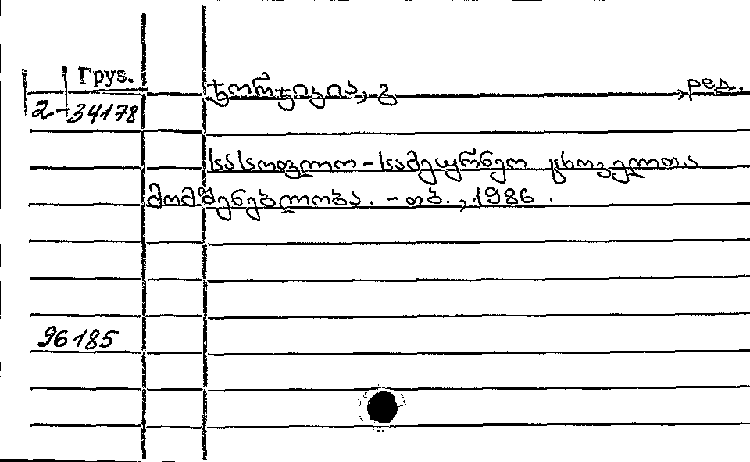 Груз.
ტორტიკია, გ ред.
2-34178
სასოფლო-სამეურნეო ცხოველთა
მომშენებლობა. - თბ., 1986.
96185